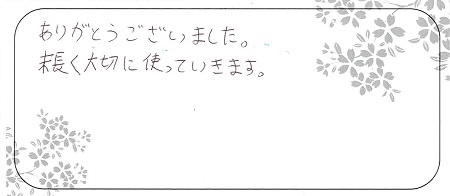 ありがとうございました。
末長く大切に使っていきます。